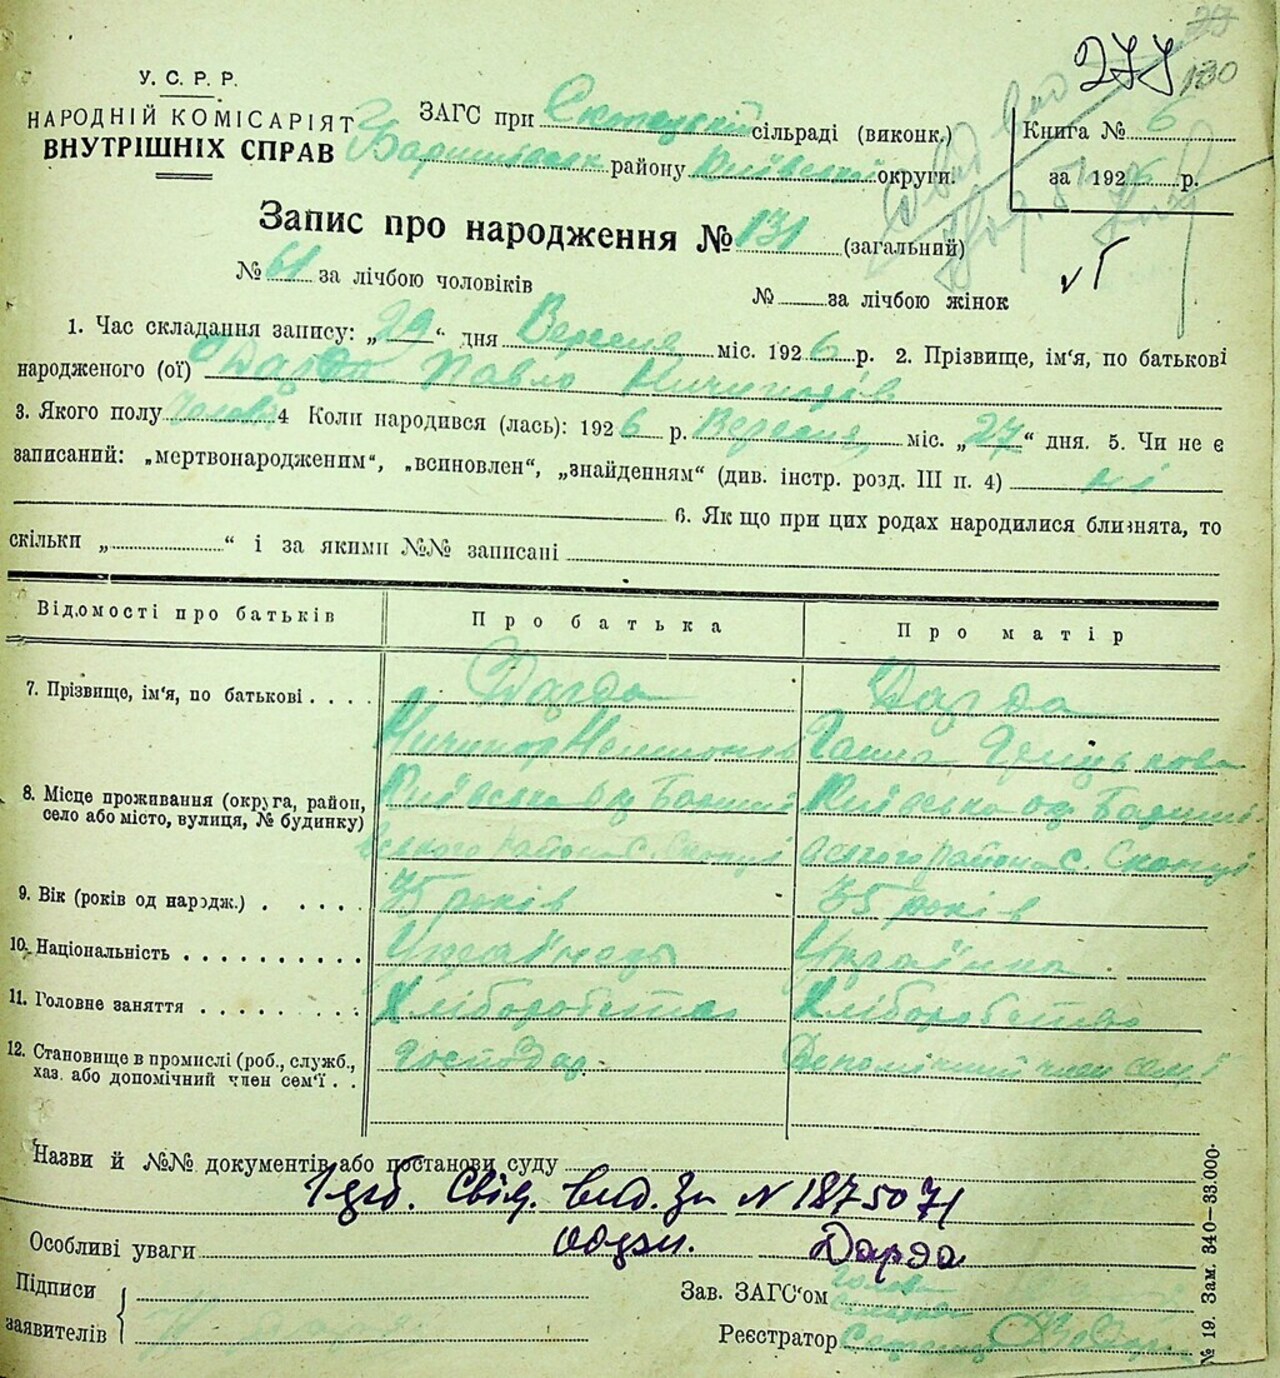 277
130
У. С. Р. Р.
НАРОДНІЙ КОМІСАРІЯТ
ВНУТРІШНІХ СПРАВ
ЗАГС при сільраді (виконк.)
району Київської округи.
Книга № 6
за 1926 р.
Запис про народження № 131 (загальний)
№ 61 за лічбою чоловіків
№ за лічбою жінок
1. Час складання запису: „29“ дня Вересня міс. 1926 р. 2. Прізвище, ім'я, по батькові
народженого (ої) Дарда Павло Ничипорів
3. Якого полу чолов. 4 Коли народився (лась): 1926 р. Вересня міс. „27“ дня. 5. Чи не є
записаний: „мертвонародженим“, „всиновлен“, „знайденням“ (див. інстр. розд. III п. 4) ні
6. Як що при цих родах народилися близнята, то
скільки „ “ і за якими №№ записані
Відомості про батьків
Про батька
Про матір
7. Прізвище, ім'я, по батькові
Дарда
Дарда
Ничипор
Ганна Грицькова
8. Місце проживання (округа, район,
село або місто, вулиця, № будинку)
Київська ок. Бориші
Київська ок. Бориші
вського району с. Скопці
вського району с. Скопці
9. Вік (років од народж.)
35 років
35 років
10. Національність
Українець
Українка
11. Головне заняття
Хліборобство
Хліборобство
12. Становище в промислі (роб., служб.,
хаз. або допомічний член сем'ї
Господар
Допомічний член сем'ї
Назви й №№ документів або постанови суду
Свід. вид. за № 1875071
Особливі уваги
Дарда
Підписи
заявителів
Зав. ЗАГС'ом Голова
Реєстратор Секретар
№ 19. Зам. 340—33.000.